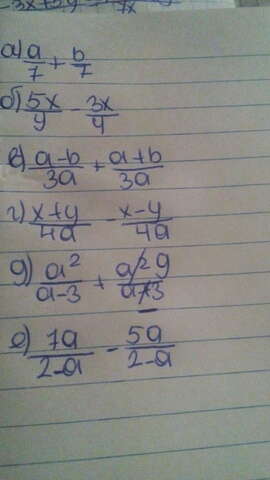 а) a/7 + b/7
б) 5x/y - 3x/y
в) a-b/3a + a+b/3a
г) x+y/4a - x-y/4a
д) a²/a-3 +
е) 7a/2-a - 5a/2-a